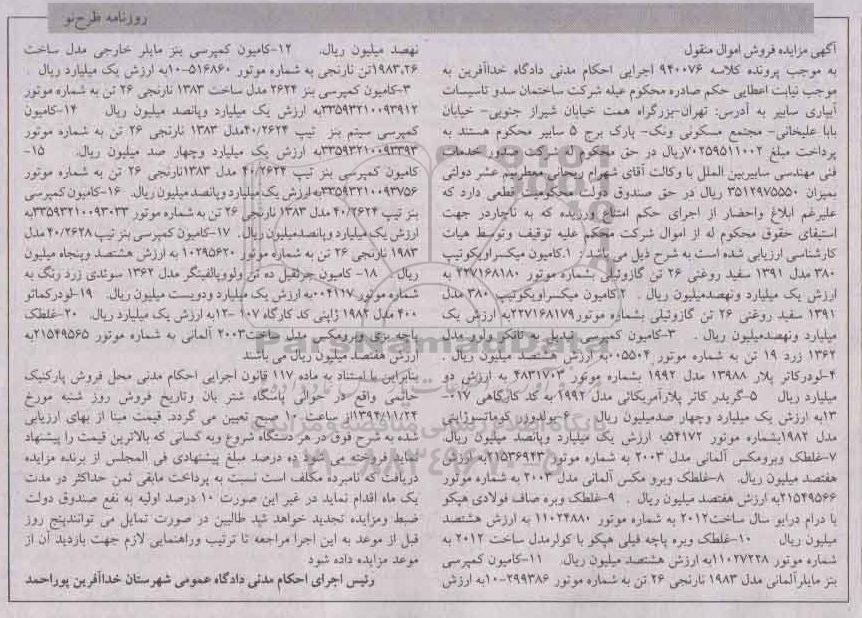 روزنامه طرح‌نو
آگهی مزایده فروش اموال منقول
به موجب پرونده کلاسه ۹۴۰۰۷۶ اجرایی احکام مدنی دادگاه خداآفرین به
موجب نیابت اعطایی حکم صادره محکوم عیله شرکت ساختمان سدو تاسیسات
آبیاری سابیر به آدرس: تهران-بزرگراه همت خیابان شیراز جنوبی- خیابان
بابا علیخانی- مجتمع مسکونی ونک- پارک برج ۵ سابیر محکوم هستند به
پرداخت مبلغ ۷۰۲۵۹۵۱۱۰۰۲ریال در حق محکوم له شرکت صدور خدمات
فنی مهندسی سابیربین الملل با وکالت آقای شهرام ریحانی معطربنیم عشر دولتی
بمیزان ۳۵۱۲۹۷۵۵۵۰ ریال در حق صندوق دولت محکومیت قطعی دارد که
علیرغم ابلاغ واحضار از اجرای حکم امتناع ورزیده که به ناچاردر جهت
استیفای حقوق محکوم له از اموال شرکت محکم علیه توقیف وتوسط هیات
کارشناسی ارزیابی شده است به شرح ذیل می باشد : ۱.کامیون میکسراویکوتیپ
۳۸۰ مدل ۱۳۹۱ سفید روغنی ۲۶ تن گازوئیلی بشماره موتور ۲۲۷۱۶۸۱۸۰ به
ارزش یک میلیارد ونهصدمیلیون ریال . ۲.کامیون میکسراویکوتیپ ۳۸۰ مدل
۱۳۹۱ سفید روغنی ۲۶ تن گازوئیلی بشماره موتور۲۲۷۱۶۸۱۷۹به ارزش یک
میلیارد ونهصدملیون ریال . ۳-کامیون کمپرسی تبدیل به تانکر ولوو مدل
۱۳۶۲ زرد ۱۹ تن به شماره موتور ۰۰۵۵۰۴به ارزش هشتصد میلیون ریال .
۴-لودرکاتر پلار ۱۳۹۸۸ مدل ۱۹۹۲ بشماره موتور ۴۸۳۱۷۰۳ به ارزش دو
میلیارد ریال ۵-گریدر کاتر پلارآمریکائی مدل ۱۹۹۲به کد کارگاهی ۰۱۷-
۱۳به ارزش یک میلیارد وچهار صدمیلیون ریال ۶-بولدوزر کوماتسوژاپنی
مدل ۱۹۸۲بشماره موتور ۵۴۱۷۲به ارزش یک میلیارد وپانصد میلیون ریال.
۷-غلطک وبرومکس آلمانی مدل ۲۰۰۳ به شماره موتور ۲۱۵۳۶۹۴۳به ارزش
هفتصد میلیون ریال. ۸-غلطک وبرو مکس آلمانی مدل ۲۰۰۳ به شماره موتور
۲۱۵۴۹۵۶۶به ارزش هفتصد میلیون ریال . ۹-غلطک ویره صاف فولادی هپکو
با درام درایو سال ساخت۲۰۱۲ به شماره موتور ۱۱۰۲۴۸۸۰ به ارزش هشتصد
میلیون ریال ۱۰-غلطک ویره پاچه فیلی هپکو با کولرمدل ساخت ۲۰۱۲ به
شماره موتور ۱۱۰۲۷۲۲۸به ارزش هشتصد میلیون ریال. ۱۱-کامیون کمپرسی
بنز مایلرآلمانی مدل ۱۹۸۳ نارنجی ۲۶ تن به شماره موتور ۲۹۹۳۸۶-۱۰به ارزش
نهصد میلیون ریال. ۱۲-کامیون کمپرسی بنز مایلر خارجی مدل ساخت
۱۹۸۳،۲۶تن نارنجی به شماره موتور ۵۱۶۸۶۰-۱۰به ارزش یک میلیارد ریال .
۳-کامیون کمپرسی بنز ۲۶۲۴ مدل ساخت ۱۳۸۳ نارنجی ۲۶ تن به شماره موتور
۳۳۵۹۳۲۱۰۰۹۳۹۱۲به ارزش یک میلیارد وپانصد میلیون ریال ۱۴-کامیون
کمپرسی سیتم بنز تیپ ۴۰/۲۶۲۴مدل ۱۳۸۳ نارنجی ۲۶ تن به شماره موتور
۳۳۵۹۳۲۱۰۰۹۳۳۹۳به ارزش یک میلیارد وچهار صد میلیون ریال. ۱۵-
کامیون کمپرسی بنز تیپ ۴۰/۲۶۲۴ مدل ۱۳۸۳نارنجی ۲۶ تن به شماره موتور
۳۳۵۹۳۲۱۰۰۹۳۷۵۶به ارزش یک میلیارد وپانصد میلیون ریال. ۱۶-کامیون کمپرسی
بنز تیپ ۴۰/۲۶۲۴ مدل ۱۳۸۳ نارنجی ۲۶ تن به شماره موتور ۳۳۵۹۳۲۱۰۰۹۳۰۳۳به
ارزش یک میلیارد وپانصدمیلیون ریال. ۱۷-کامیون کمپرسی بنز تیپ ۴۰/۲۶۲۸ مدل
۱۹۸۳ نارنجی ۲۶ تن به شماره موتور ۱۰۲۹۵۶۲۰ به ارزش هشتصد وپنجاه میلیون
ریال . ۱۸- کامیون جرثقیل ده تن ولووپالفینگر مدل ۱۳۶۲ سوئدی زرد رنگ به
شماره موتور ۰۰۴۱۱۷به ارزش یک میلیارد ودویست میلیون ریال. ۱۹-لودرکماتو
۴۰۰ مدل ۱۹۸۲ ژاپنی کد کارگاه ۱۰۷ -۱۲به ارزش یک میلیارد ریال. ۲۰-غلطک
پاچه بزی وبرومکس مدل ساخت۲۰۰۳ آلمانی به شماره موتور ۲۱۵۴۹۵۶۵به
ارزش هفتصد میلیون ریال می باشند
بنابراین با استناد به ماده ۱۱۷ قانون اجرایی احکام مدنی محل فروش پارکنیک
حاتمی واقع در حوالی پاسگاه شتر بان وتاریخ فروش روز شنبه مورخ
۱۳۹۴/۱۱/۲۴از ساعت ۱۰ صبح تعیین می گردد. قیمت مبنا از بهای ارزیابی
شده به شرح فوق در هر دستگاه شروع وبه کسانی که بالاترین قیمت را پیشنهاد
نماید فروخته می شود ده درصد مبلغ پیشنهادی فی المجلس از برنده مزایده
دریافت که نامبرده مکلف است نسبت به پرداخت مابقی ثمن حداکثر در مدت
یک ماه اقدام نماید در غیر این صورت ۱۰ درصد اولیه به نفع صندوق دولت
ضبط ومزایده تجدید خواهد شد طالبین در صورت تمایل می توانندپنج روز
قبل از موعد به این اجرا مراجعه تا ترتیب وراهنمایی لازم جهت بازدید آن از
موعد مزایده داده شود
رئیس اجرای احکام مدنی دادگاه عمومی شهرستان خداآفرین پوراحمد
ParsNamadData
پایگاه اطلاع رسانی مناقصه و مزایده
۰۲۱-۸۸۳۴۹۶۷۰-۵